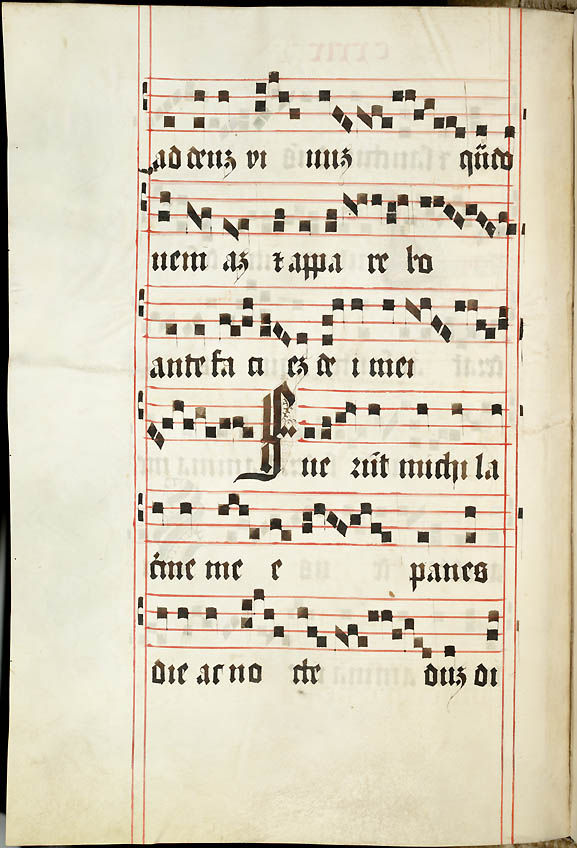 ad deuz vi uuz qn̄do
uem az ⁊ appa re bo
ante fa ci ez de i mei
Fue rūt michi la
c̄me me e panes
die ac no cte duz di